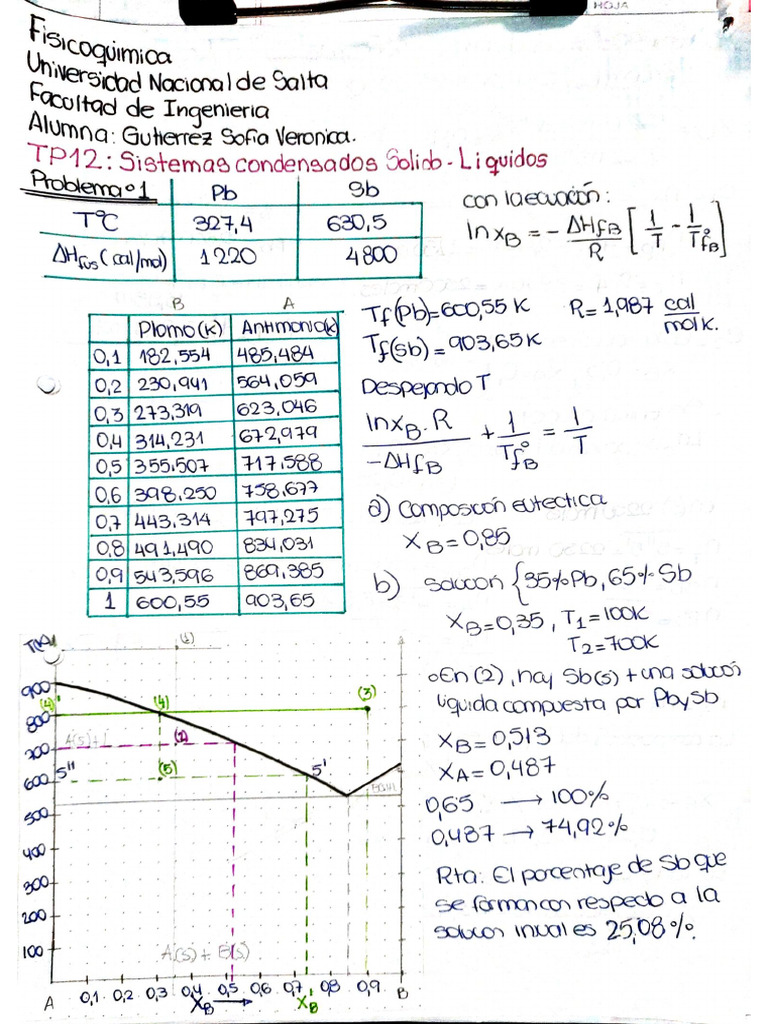 HOJA
Fisicoquimica
Universidad Nacional de Salta
Facultad de Ingenieria
Alumna: Gutierrez Sofia Veronica.
TP12: Sistemas condensados Solido - Liquidos
Problema °1 Pb Sb
T°C 327,4 630,5
ΔHfus (cal/mol) 1220 4800
con la ecuación:
ln xB = - ΔHfB / R [ 1/T - 1/T°fB ]
B A
Plomo (K) Antimonio (K)
0,1 182,554 485,484
0,2 230,941 564,059
0,3 273,319 623,046
0,4 314,231 672,979
0,5 355.507 717.588
0,6 398,250 758,677
0,7 443,314 797,275
0,8 491,490 834,031
0,9 543,596 869,385
1 600,55 903,65
Tf(Pb)=600,55 K R=1,987 cal/mol K.
Tf(Sb)=903,65K
Despejando T
ln xB . R / -ΔHfB + 1/T°fB = 1/T
a) Composición eutectica
XB = 0,85
b) Solución { 35% Pb, 65% Sb
XB=0,35, T1=100K
T2=700K
En (2), hay Sb(s) + una solucos
liquida compuesta por Pb y Sb
XB = 0,513
XA = 0,487
0,65 → 100%
0,487 → 74,92%
Rta: El porcentaje de Sb que
se forman con respecto a la
solucon inicial es 25,08%.
T(K) (1)
900
(4)'' (4) (3)
800
A(s)+L (2)
700
600 5'' (5) 5'
500
400
300
200
100 A(s) + B(s)
A 0,1 0,2 0,3 0,4 0,5 0,6 0,7 0,8 0,9 B
XB → XB'